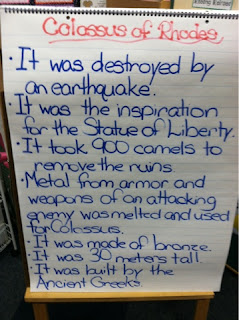 Colossus of Rhodes
• It was destroyed by
an earthquake.
• It was the inspiration
for the Statue of Liberty.
• It took 900 camels to
remove the ruins
• Metal from armor and
weapons of an attacking
enemy was melted and used
for Colossus.
• It was made of bronze.
• It was 30 meters tall.
• It was built by the
Ancient Greeks.